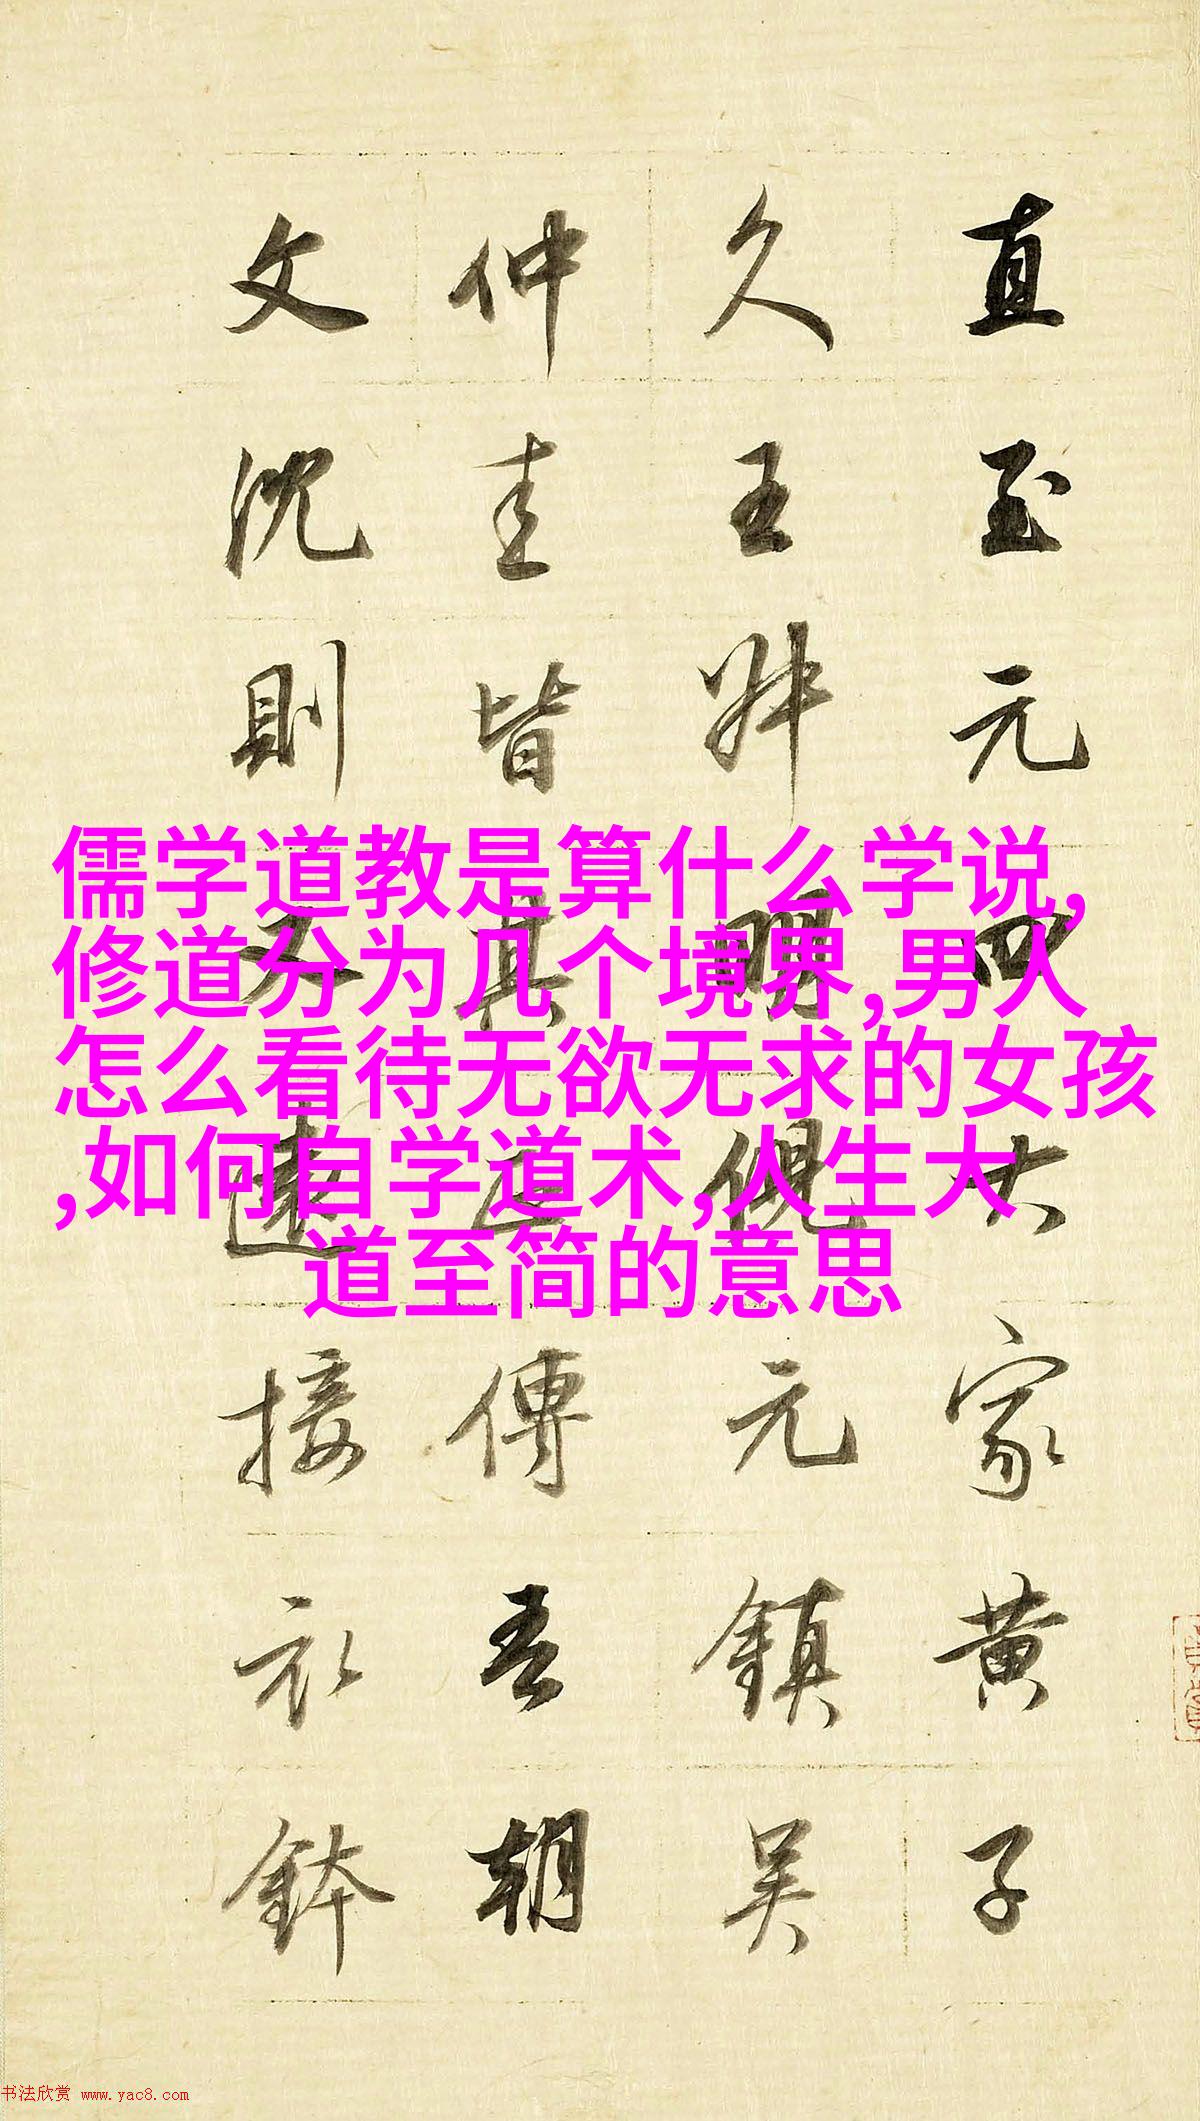 直至元四大家黄子
久王叔明倪元鎮吴
仲圭皆其正傳吾朝
文沈則又遠接衣鉢
儒学道教是算什么学说,
修道分为几个境界,男人
怎么看待无欲无求的女孩
,如何自学道术,人生大
道至简的意思
书法欣赏 www.yac8.com